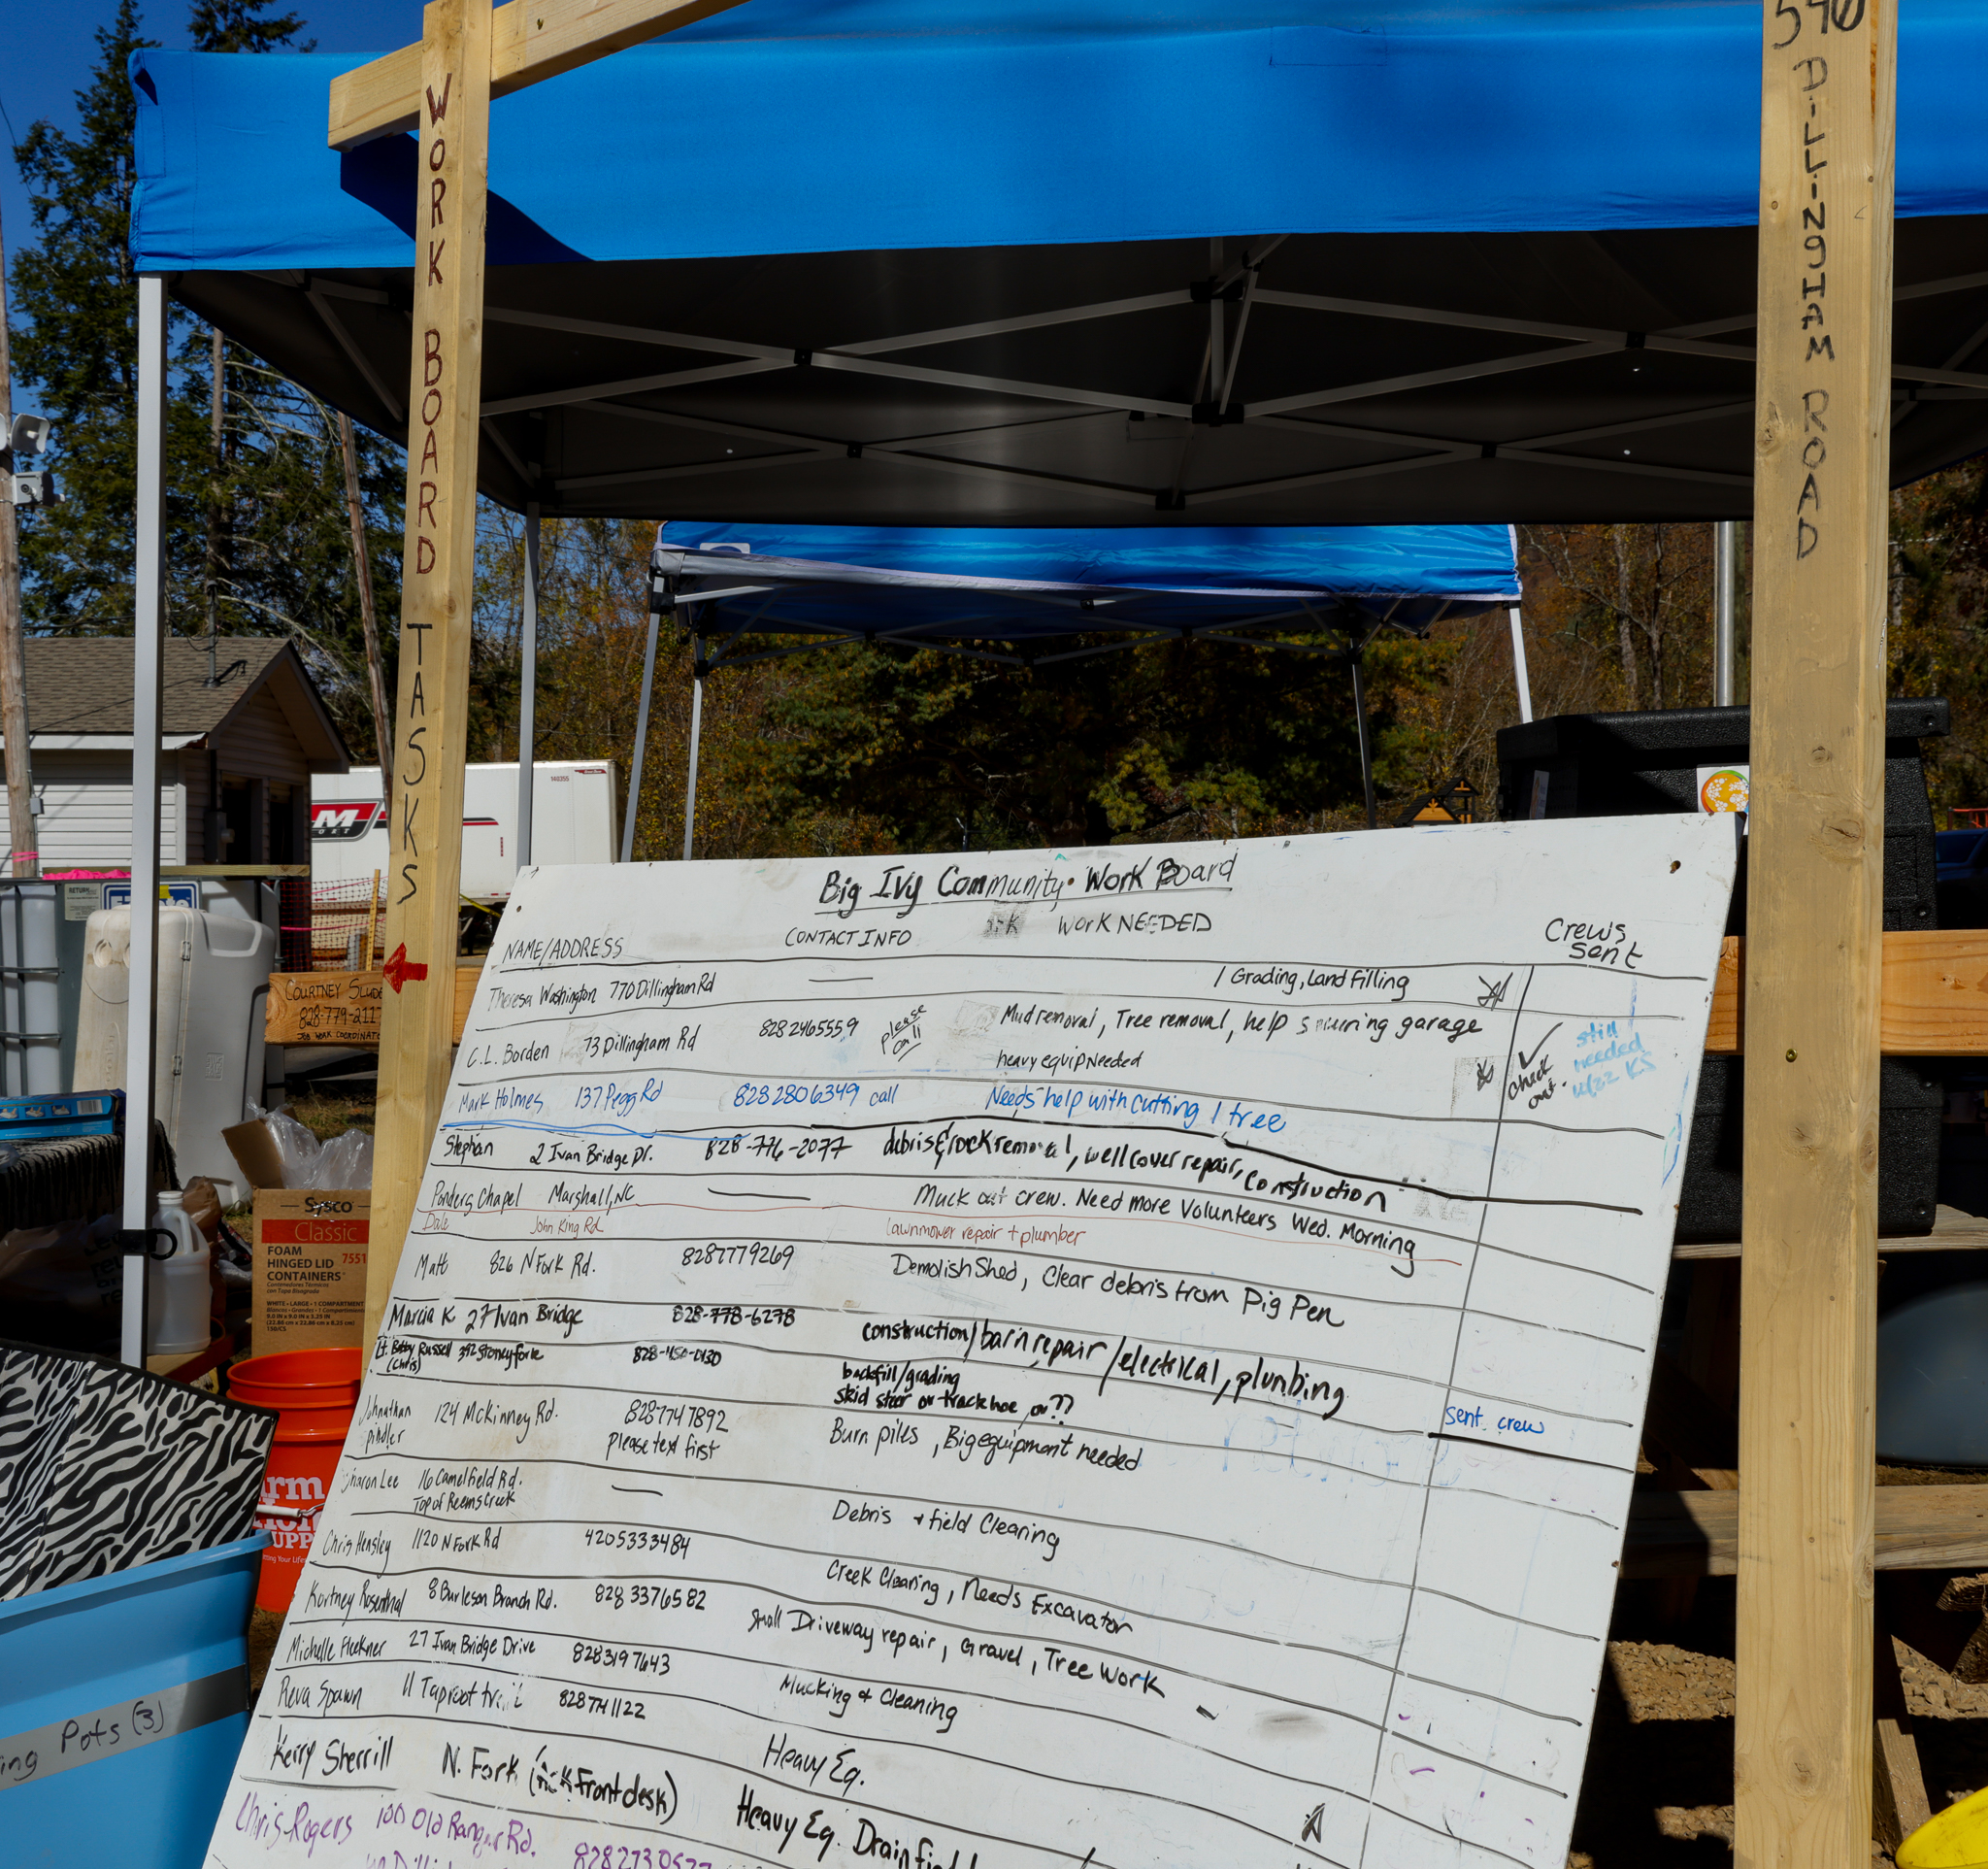 WORK BOARD TASKS
DILLINGHAM ROAD
Big Ivy Community Work Board
NAME/ADDRESS CONTACT INFO WORK NEEDED Crews sent
Theresa Washington 770 Dillingham Rd — / Grading, Land filling
C.L. Borden 73 Dillingham Rd 828 2465559 please call Mud removal, Tree removal, help garage
heavy equip Needed check out. still needed KS
Mark Holmes 137 Pegg Rd 828 2806349 call Needs help with cutting 1 tree
Stephan 2 Ivan Bridge Dr. 828-776-2077 debris & rock removal, well cover repair, construction
Ponders Chapel Marshall, NC — Muck out crew. Need more Volunteers Wed. Morning
Dale John King Rd lawnmower repair + plumber
Matt 826 N Fork Rd. 8287779269 Demolish Shed, Clear debris from Pig Pen
Marcia K 27 Ivan Bridge 828-778-6278 construction/barn repair/electrical, plunbing
Lt. Bobby Russell 392 Stoney fork 828-450-0130 backfill/grading
(Chris) skid steer or track hoe, or??
Johnathan 124 McKinney Rd. 8287747892 Burn piles, Big equipment needed sent crew
pindler please text first
Sharon Lee 16 Camelfield Rd. — Debris + field Clearing
Top of Reems Creek
Chris Hensley 1120 N Fork Rd 4205333484 Creek Clearing, Needs Excavator
Kortney Rosenthal 8 Burleson Branch Rd. 828 3376582 Small Driveway repair, Gravel, Tree Work
Michelle Fleckner 27 Ivan Bridge Drive 8283197643 Mucking & Cleaning
Reva Spawn 11 Taproot trail 828741122 Heavy Eq.
Kerry Sherrill N. Fork Front desk) Heavy Eq. Drain
Chris Rogers 100 Old Ranger Rd.
COURTNEY
828-779-2117
JOB WORK COORDINATOR
RETURN
M
140355
Sysco
Classic
FOAM 7551
HINGED LID
CONTAINERS
WHITE • LARGE • 1 COMPARTMENT
Pots (3)